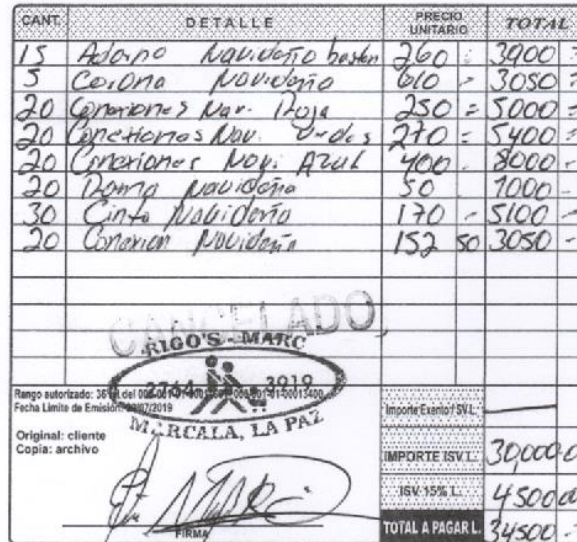 CANT. DETALLE PRECIO UNITARIO TOTAL
15 Adorno Navideño baston 260 3900
5 Corona Navideña 610 3050
20 Conexiones Nav. Roja 250 = 5000 =
20 Conexiones Nav. Verdes 270 = 5400 =
20 Conexiones Nav. Azul 400 - 8000 -
20 Rama Navideña 50 1000 -
30 Cinta Navideña 170 - 5100 -
20 Conexion Navideña 152 50 3050 -
CANCELADO
RIGO'S - MARC
2764 3919
MARCALA, LA PAZ
Rango autorizado:
Fecha Limite de Emisión: /07/2019
Importe Exento ISV L.
Original: cliente
Copia: archivo
IMPORTE ISV L. 30,000.0
ISV 15% L. 4500
FIRMA
TOTAL A PAGAR L. 34500 -